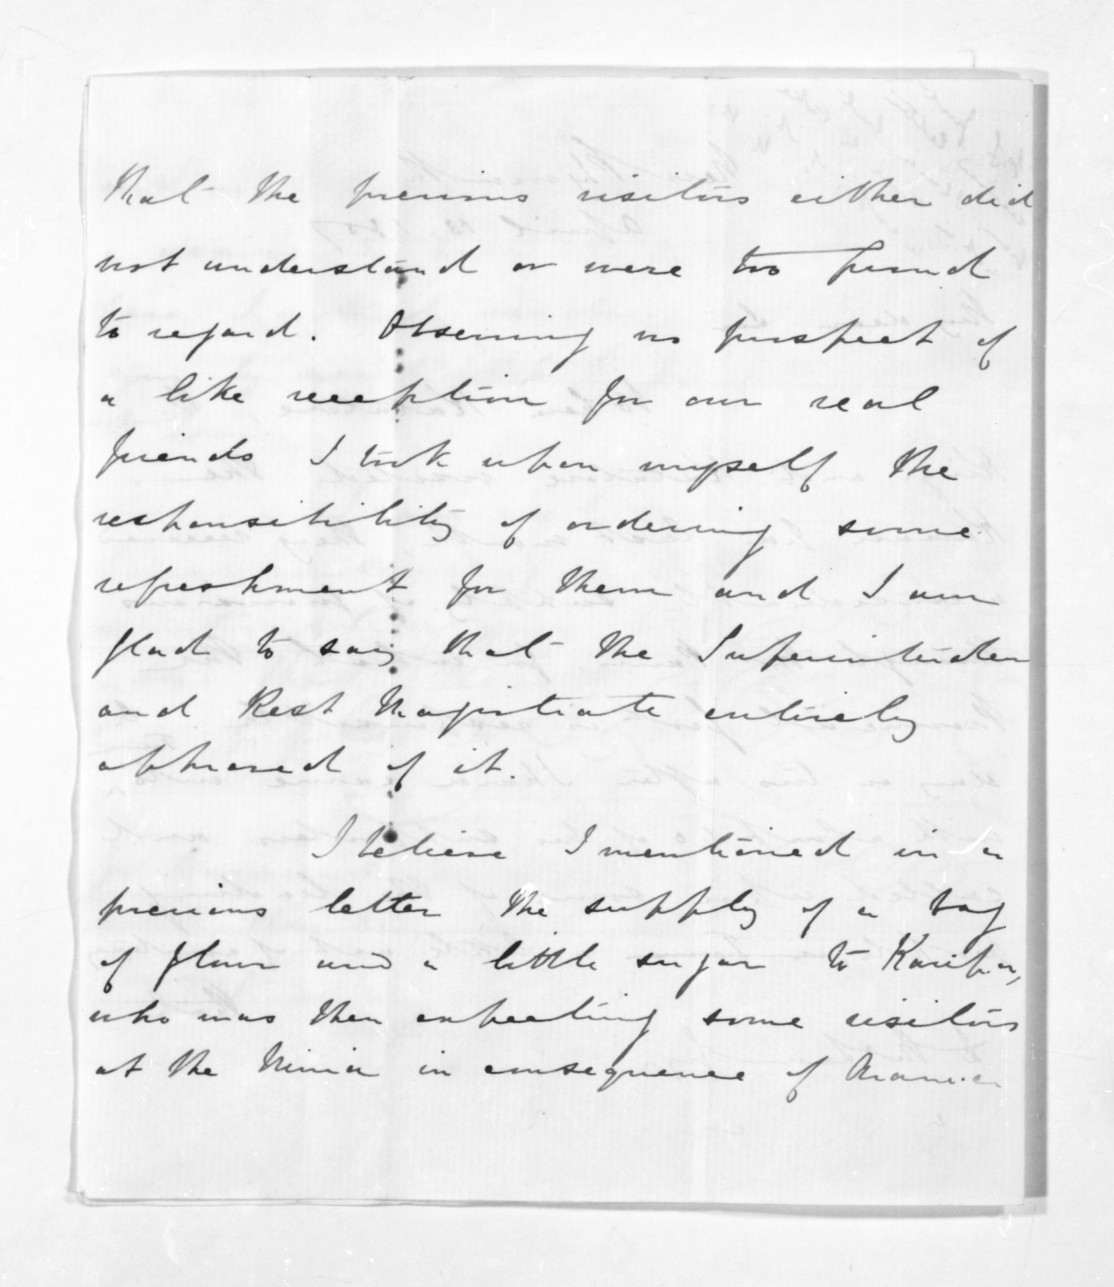 that the previous visitors either did
not understand or were too proud
to regard. Observing no prospect of
a like reception for our real
friends I took upon myself the
responsibility of ordering some
refreshment for them and I am
glad to say that the Superintenden
and Rest Magistrate entirely
approved of it.
I believe I mentioned in a
previous letter the supply of a bag
of flour and a little sugar to Karipa,
who was then expecting some visitors
at the Ninia in consequence of